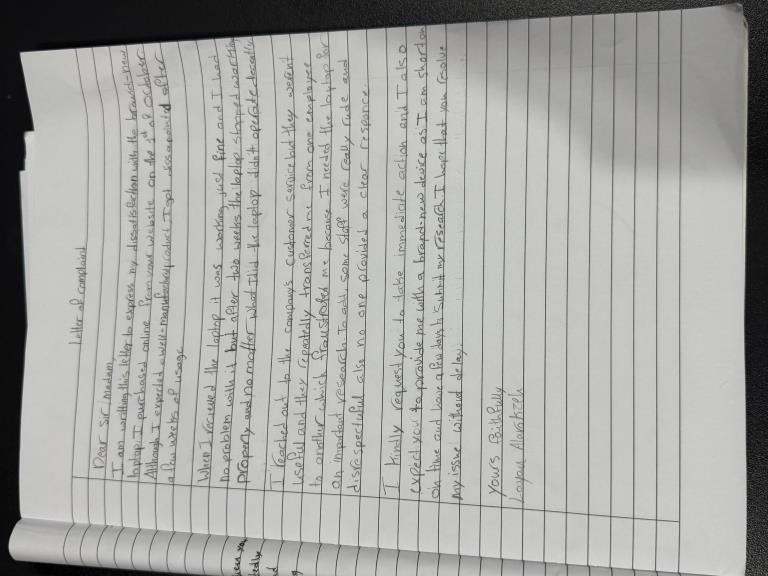 Letter of complaint
Dear Sir/Madam
I am writting this letter to express my dissatisfection with the brand-new
laptop I purchased online from your website on the 1st of October
Although I expected a well-manufactured product I got dissapointed after
a few weeks of usage
When I recieved the laptop it was working just fine and I had
no problem with it but after two weeks the laptop stopped working
Properly and no matter what I did the laptop didn't operate
I reached out to the company's customer service but they weren't
useful and they repeatedly transferred me from one employee
to another which frustrated me because I needed the laptop for
an important research To add, some staff were really rude and
disrespectful also no one provided a clear responce.
I kindly request you to take immediate action and I also
expect you to provide me with a brand-new device as I am short on
on time and have a few days to submit my research I hope that you resolve
my issue without delay.
yours faithfully
Layan